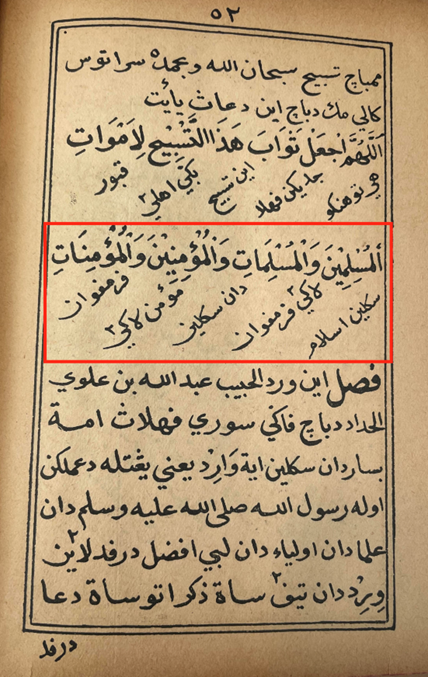 ٥٢
ممباچ تسبيح سبحان الله وبحمده سراتوس
كالي مك دباچ اين دعاث يأيت
اَللّٰهُمَّ اجْعَلْ ثَوَابَ هَذَا التَّسْبِيْحِ لِاَمْوَاتِ
هي توهنكو جديكن فهلا اين تسبيح بكي اهلي٢ قبور
اَلْمُسْلِمِيْنَ وَالْمُسْلِمَاتِ وَالْمُؤْمِنِيْنَ وَالْمُؤْمِنَاتِ
سكلين اسلام لاكي٢ فرمفوان دان سكلين مؤمن لاكي٢ فرمفوان
فصل اين ورد الحبيب عبد الله بن علوي
الحداد دباچ فاكي سوري فهلاث امة
بسار دان سكلين اية وَارِد يعني يڠتله دعملكن
اوله رسول الله صلى الله عليه وسلم دان
علما دان اولياء دان لبي افضل درفد لاين٢
وِرِد دان تيف٢ ساة ذكر اتو ساة دعا
درفد